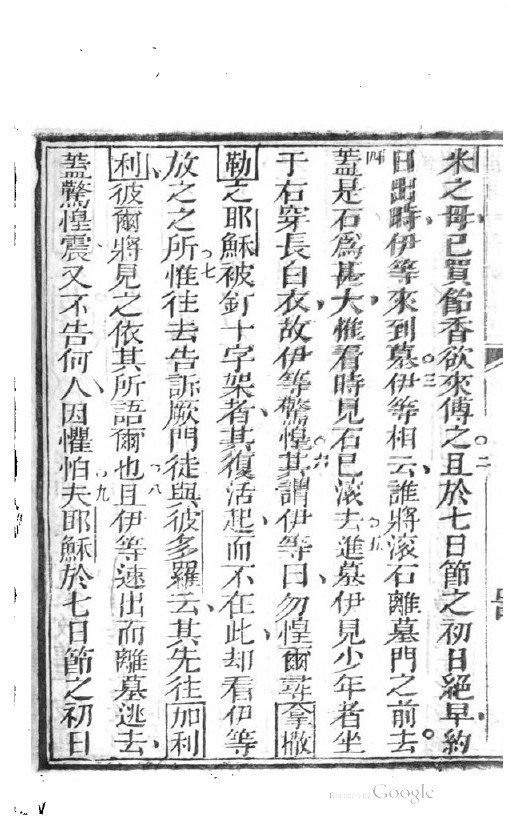 米之母已買飴香欲來傅之○二且於七日節之初日絕早約
日出時伊等來到墓○三伊等相云誰將滚石離墓門之前去○
四蓋是石爲甚大惟看時見石已滚去○五進墓伊見少年者坐
于右穿長白衣故伊等驚惶○六其謂伊等曰勿惶爾尋拿撒
勒之耶穌被釘十字架者其復活起而不在此却看伊等
放之之所○七惟往去告訴厥門徒與彼多羅云其先往加利
利彼爾將見之依其所語爾也○八且伊等速出而離墓逃去
蓋驚惶震又不告何人因懼怕○九夫耶穌於七日節之初日
Digitized by Google